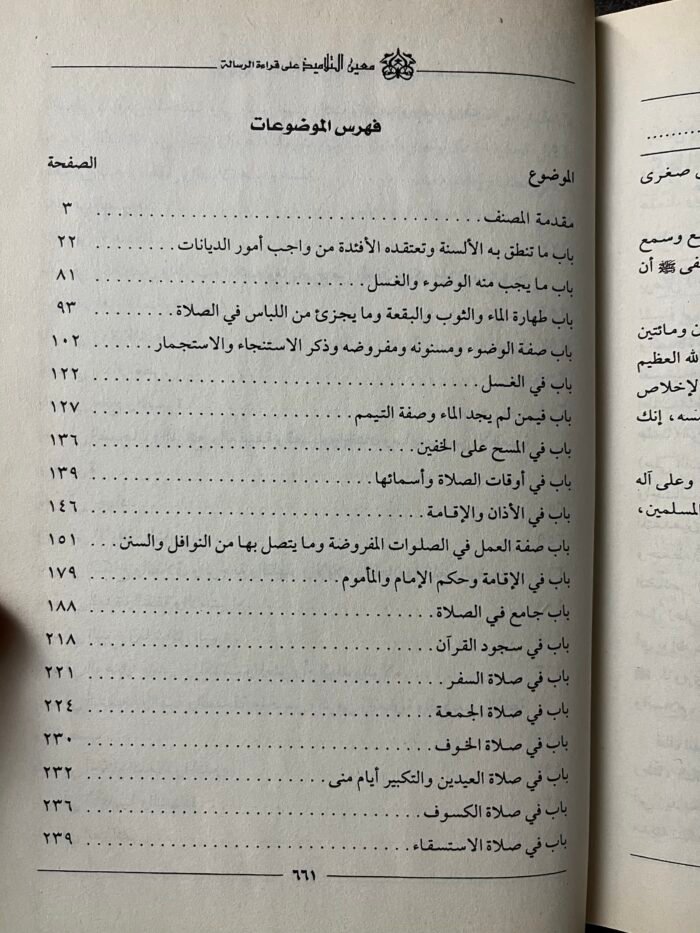 معين التلاميذ على قراءة الرسالة
فهرس الموضوعات
الموضوع الصفحة
مقدمة المصنف ........ ٣
باب ما تنطق به الألسنة وتعتقده الأفئدة من واجب أمور الديانات ........ ٢٢
باب ما يجب منه الوضوء والغسل ........ ٨١
باب طهارة الماء والثوب والبقعة وما يجزئ من اللباس في الصلاة ........ ٩٣
باب صفة الوضوء ومسنونه ومفروضه وذكر الاستنجاء والاستجمار ........ ١٠٢
باب في الغسل ........ ١٢٢
باب فيمن لم يجد الماء وصفة التيمم ........ ١٢٧
باب في المسح على الخفين ........ ١٣٦
باب في أوقات الصلاة وأسمائها ........ ١٣٩
باب في الأذان والإقامة ........ ١٤٦
باب صفة العمل في الصلوات المفروضة وما يتصل بها من النوافل والسنن ... ١٥١
باب في الإقامة وحكم الإمام والمأموم ........ ١٧٩
باب جامع في الصلاة ........ ١٨٨
باب في سجود القرآن ........ ٢١٨
باب في صلاة السفر ........ ٢٢١
باب في صلاة الجمعة ........ ٢٢٤
باب في صلاة الخوف ........ ٢٣٠
باب في صلاة العيدين والتكبير أيام منى ........ ٢٣٢
باب في صلاة الكسوف ........ ٢٣٦
باب في صلاة الاستسقاء ........ ٢٣٩
٦٦١
صغرى
ع وسمع
فى ﷺ أن
ن ومائتين
لله العظيم
لإخلاص
نسه، إنك
وعلى آله
المسلمين،